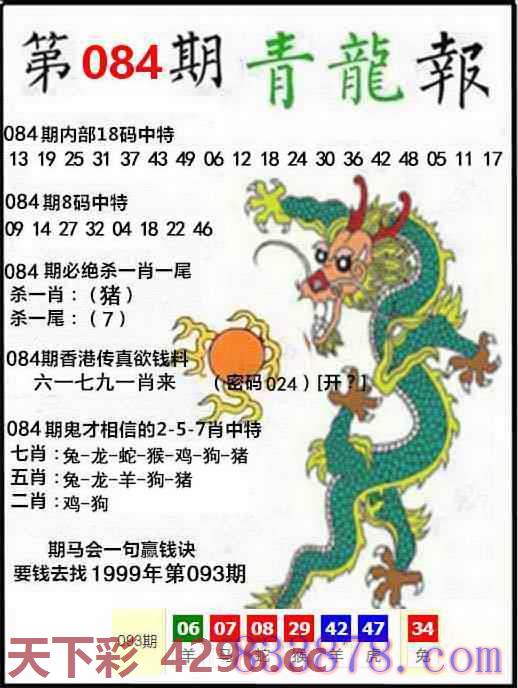 第084期 青龍報
084期内部18码中特
13 19 25 31 37 43 49 06 12 18 24 30 36 42 48 05 11 17
084期8码中特
09 14 27 32 04 18 22 46
084期必绝杀一肖一尾
杀一肖：（猪）
杀一尾：（7）
084期香港传真欲钱料
六一七九一肖来 （密码024）[开？]
084期鬼才相信的2-5-7肖中特
七肖：兔-龙-蛇-猴-鸡-狗-猪
五肖：兔-龙-羊-狗-猪
二肖：鸡-狗
期马会一句赢钱诀
要钱去找1999年第093期
093期 06 07 08 29 42 47 34
羊 马 蛇 猴 羊 虎 兔
天下彩 4296.cc